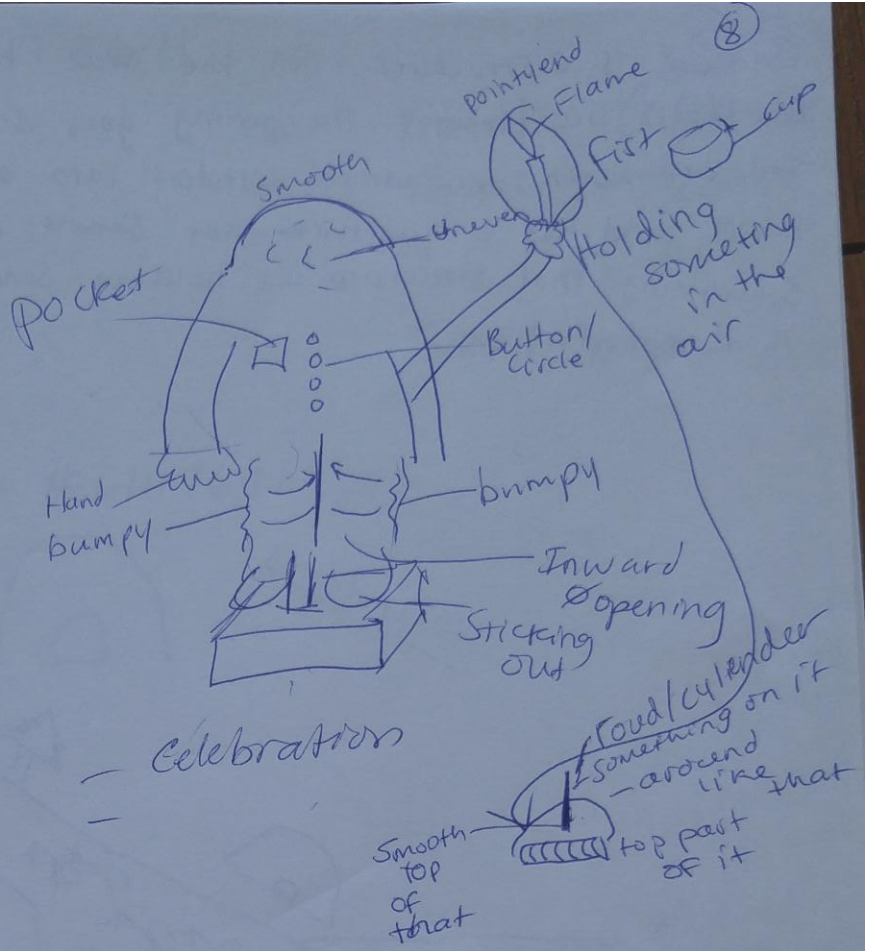 8
pointyend
Flame
Fist
cup
Smooth
uneven
Holding
someting
in the
air
pocket
Button/
circle
Hand
bumpy
bumpy
Inward
opening
Sticking
out
Celebration
roud/cylender
something on it
around
like that
Smooth
top
of
that
top part
of it